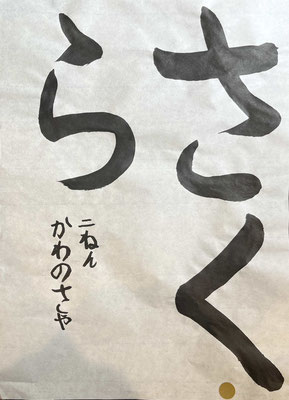 さく
ら
二ねん
かわのさや